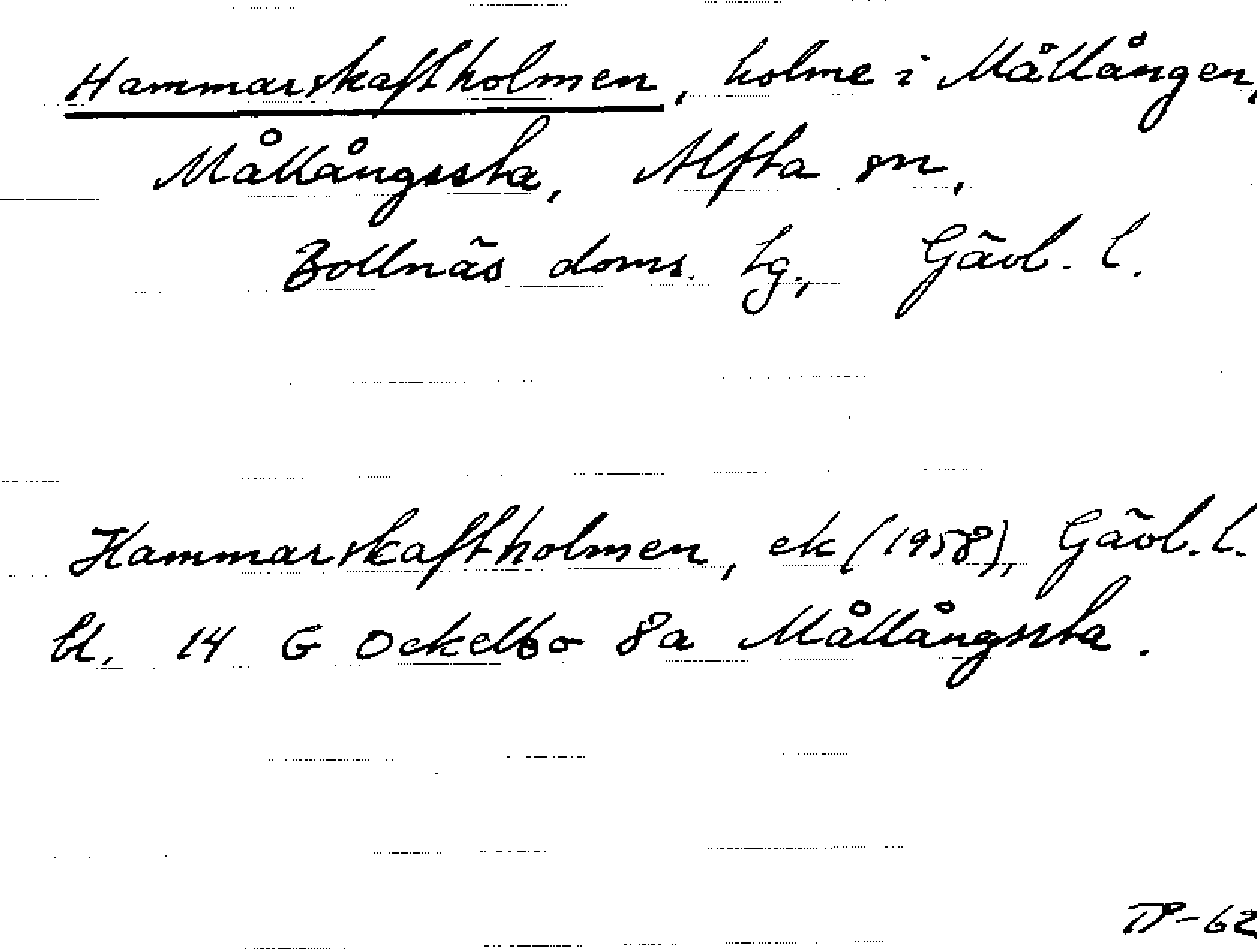 Hammarskaftholmen, holme i Mållången,
Mållångssta, Alfta sn,
Bollnäs doms. tg., Gävl. l.
Hammarskaftholmen, ek (1958), Gävl. l.
bl. 14 G Ockelbo 8a Mållångssta.
TP-62